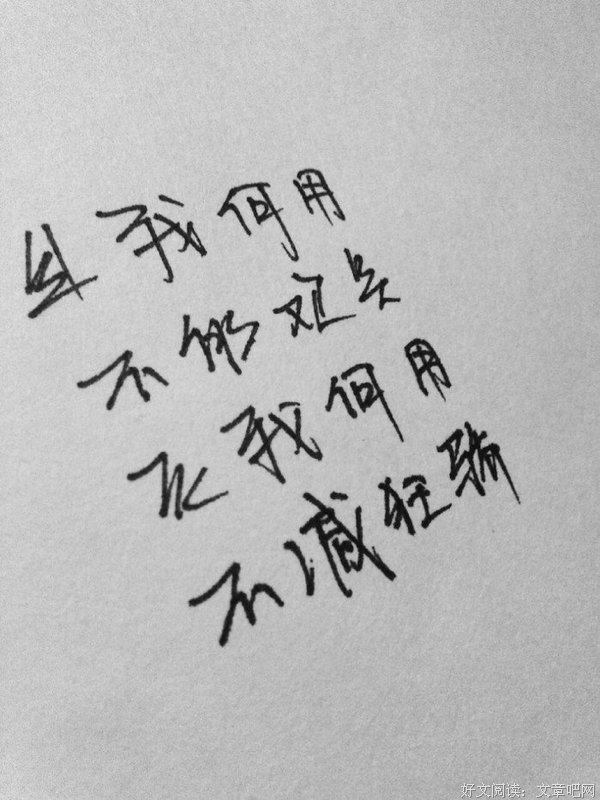 生我何用
不能欢笑
灭我何用
不减狂骄
好文阅读：文章吧网